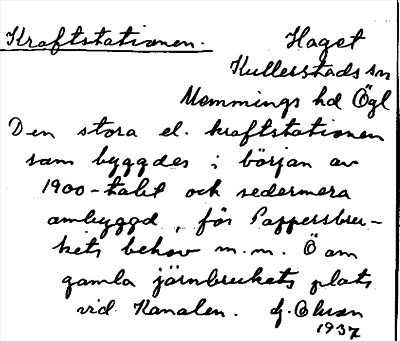 Kraftstationen. Haget
Kullerstads sn
Memmings hd Ögl
Den stora el. kraftstationen
som byggdes i början av
1900-talet och sedermera
ombyggd, för Pappersbru-
kets behov m.m. Ö om
gamla järnbrukets plats
vid Kanalen. Hj. Olsson
1937